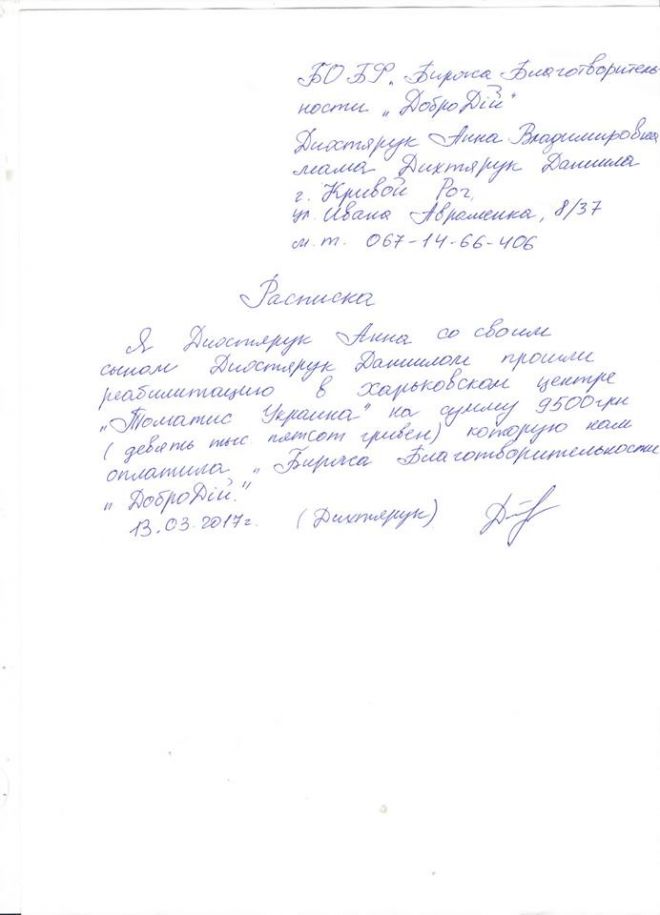 БО БФ „Биржа Благотворитель-
ности „ДоброДій"
Дихтярук Анна Владимировна
мама Дихтярук Даниила
г. Кривой Рог,
ул. Ивана Авраменка, 8/37
м.т. 067-14-66-406
Расписка
Я Дихтярук Анна со своим
сыном Дихтярук Даниилом прошли
реабилитацию в Харьковском центре
„Томатис Украина" на сумму 9500грн
(девять тыс пятсот гривен) которую нам
оплатила „Биржа Благотворительности
„ДоброДій".
13.03.2017г. (Дихтярук)